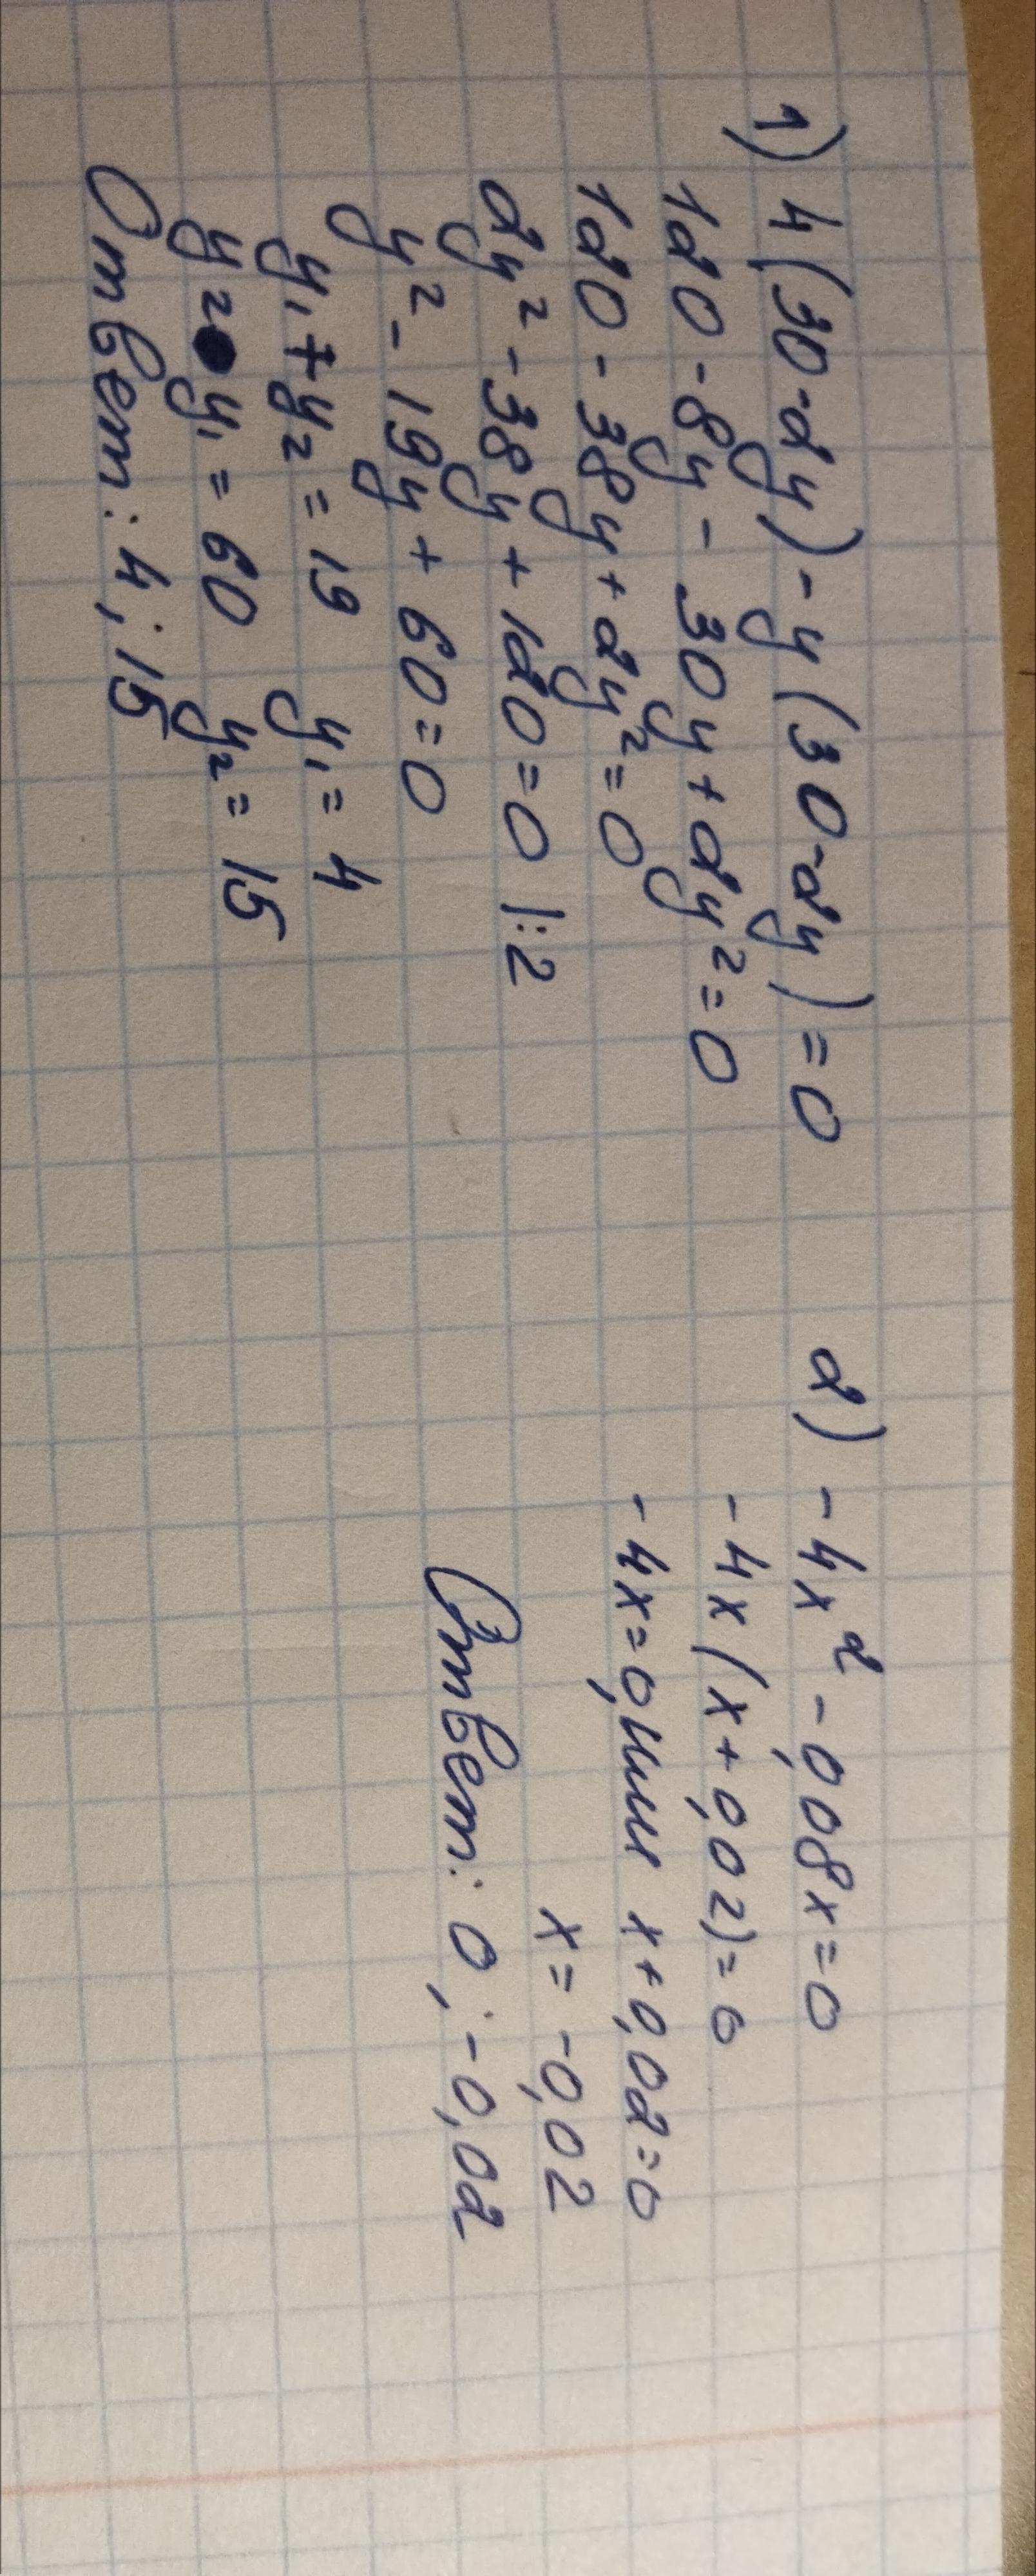 1) 4(30-2y)-y(30-2y)=0
120-8y-30y+2y²=0
120-38y+2y²=0
2y²-38y+120=0 |:2
y²-19y+60=0
y₁+y₂=19 y₁=4
y₂•y₁=60 y₂=15
Ответ: 4; 15
2) -4x²-0,08x=0
-4x(x+0,02)=0
-4x=0, или x+0,02=0
x=-0,02
Ответ: 0; -0,02